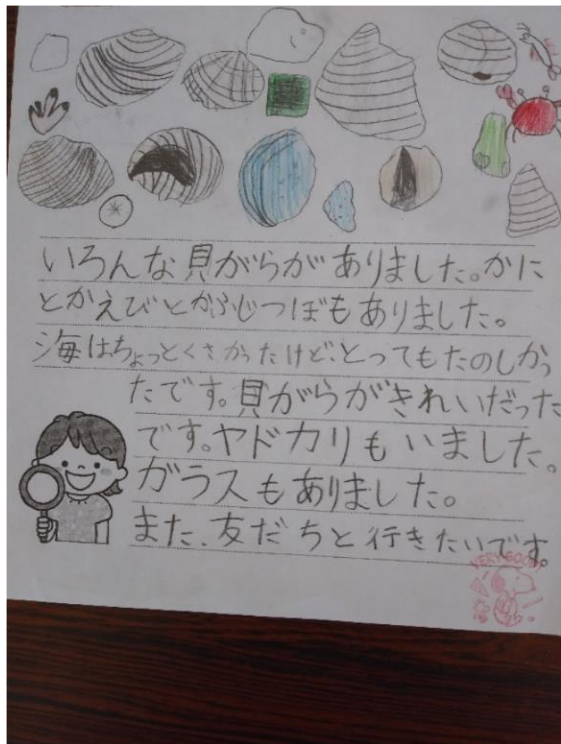 いろんな貝がらがありました。かに
とかえびとかふじつぼもありました。
海はちょっとくさかったけど、とってもたのしかっ
たです。貝がらがきれいだった
です。ヤドカリもいました。
ガラスもありました。
また、友だちと行きたいです。
VERY GOOD!